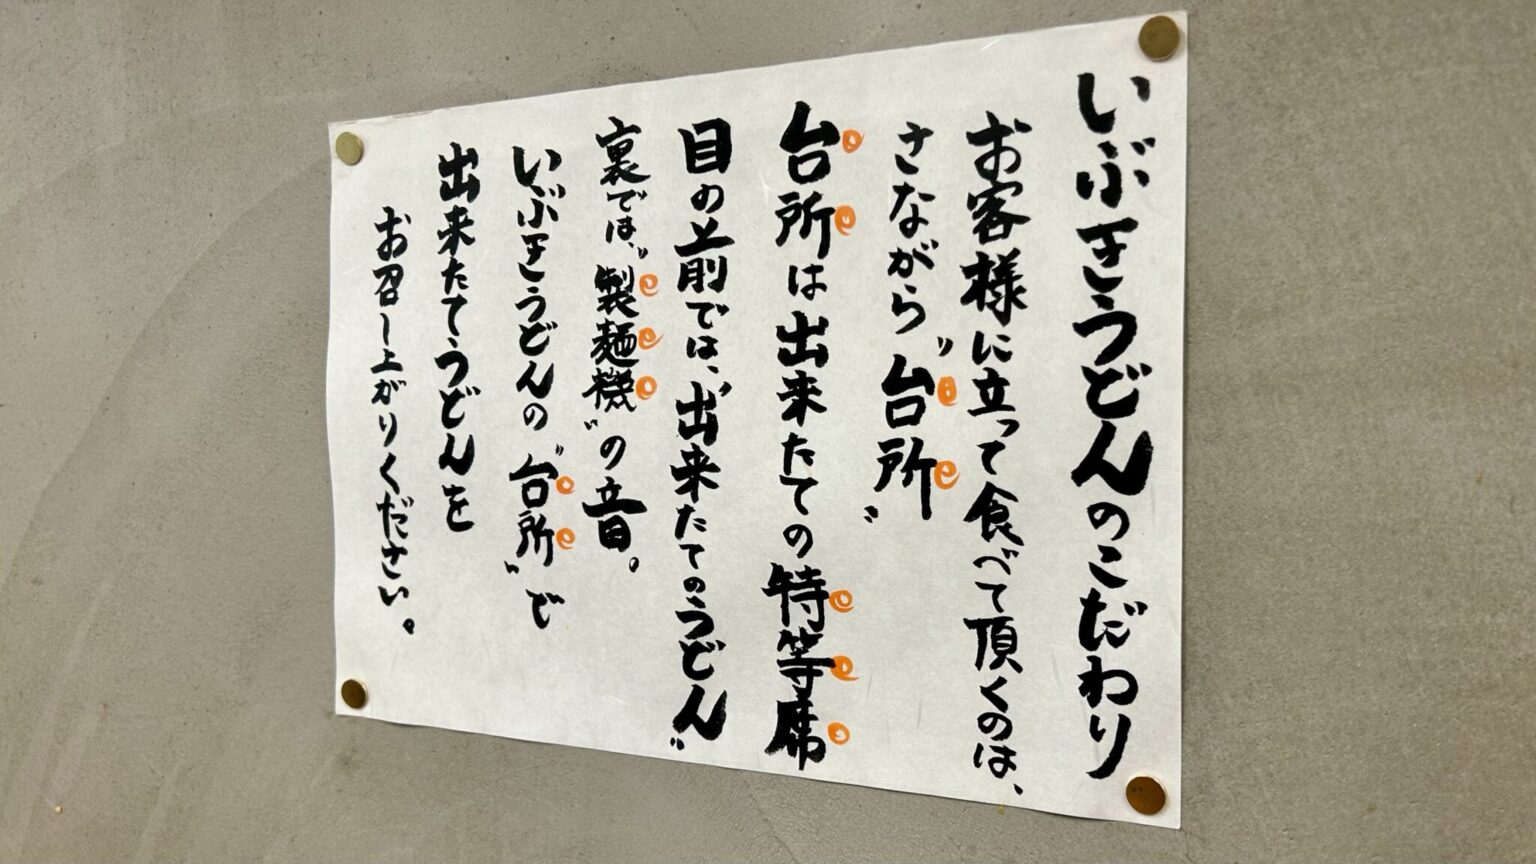 いぶきうどんのこだわり
お客様に立って食べて頂くのは、
さながら〝台所〟
台所は出来たての特等席
目の前では、〝出来たてのうどん〟
裏では、〝製麺機〟の音。
いぶきうどんの〝台所〟で
出来たてうどんを
お召し上がりください。